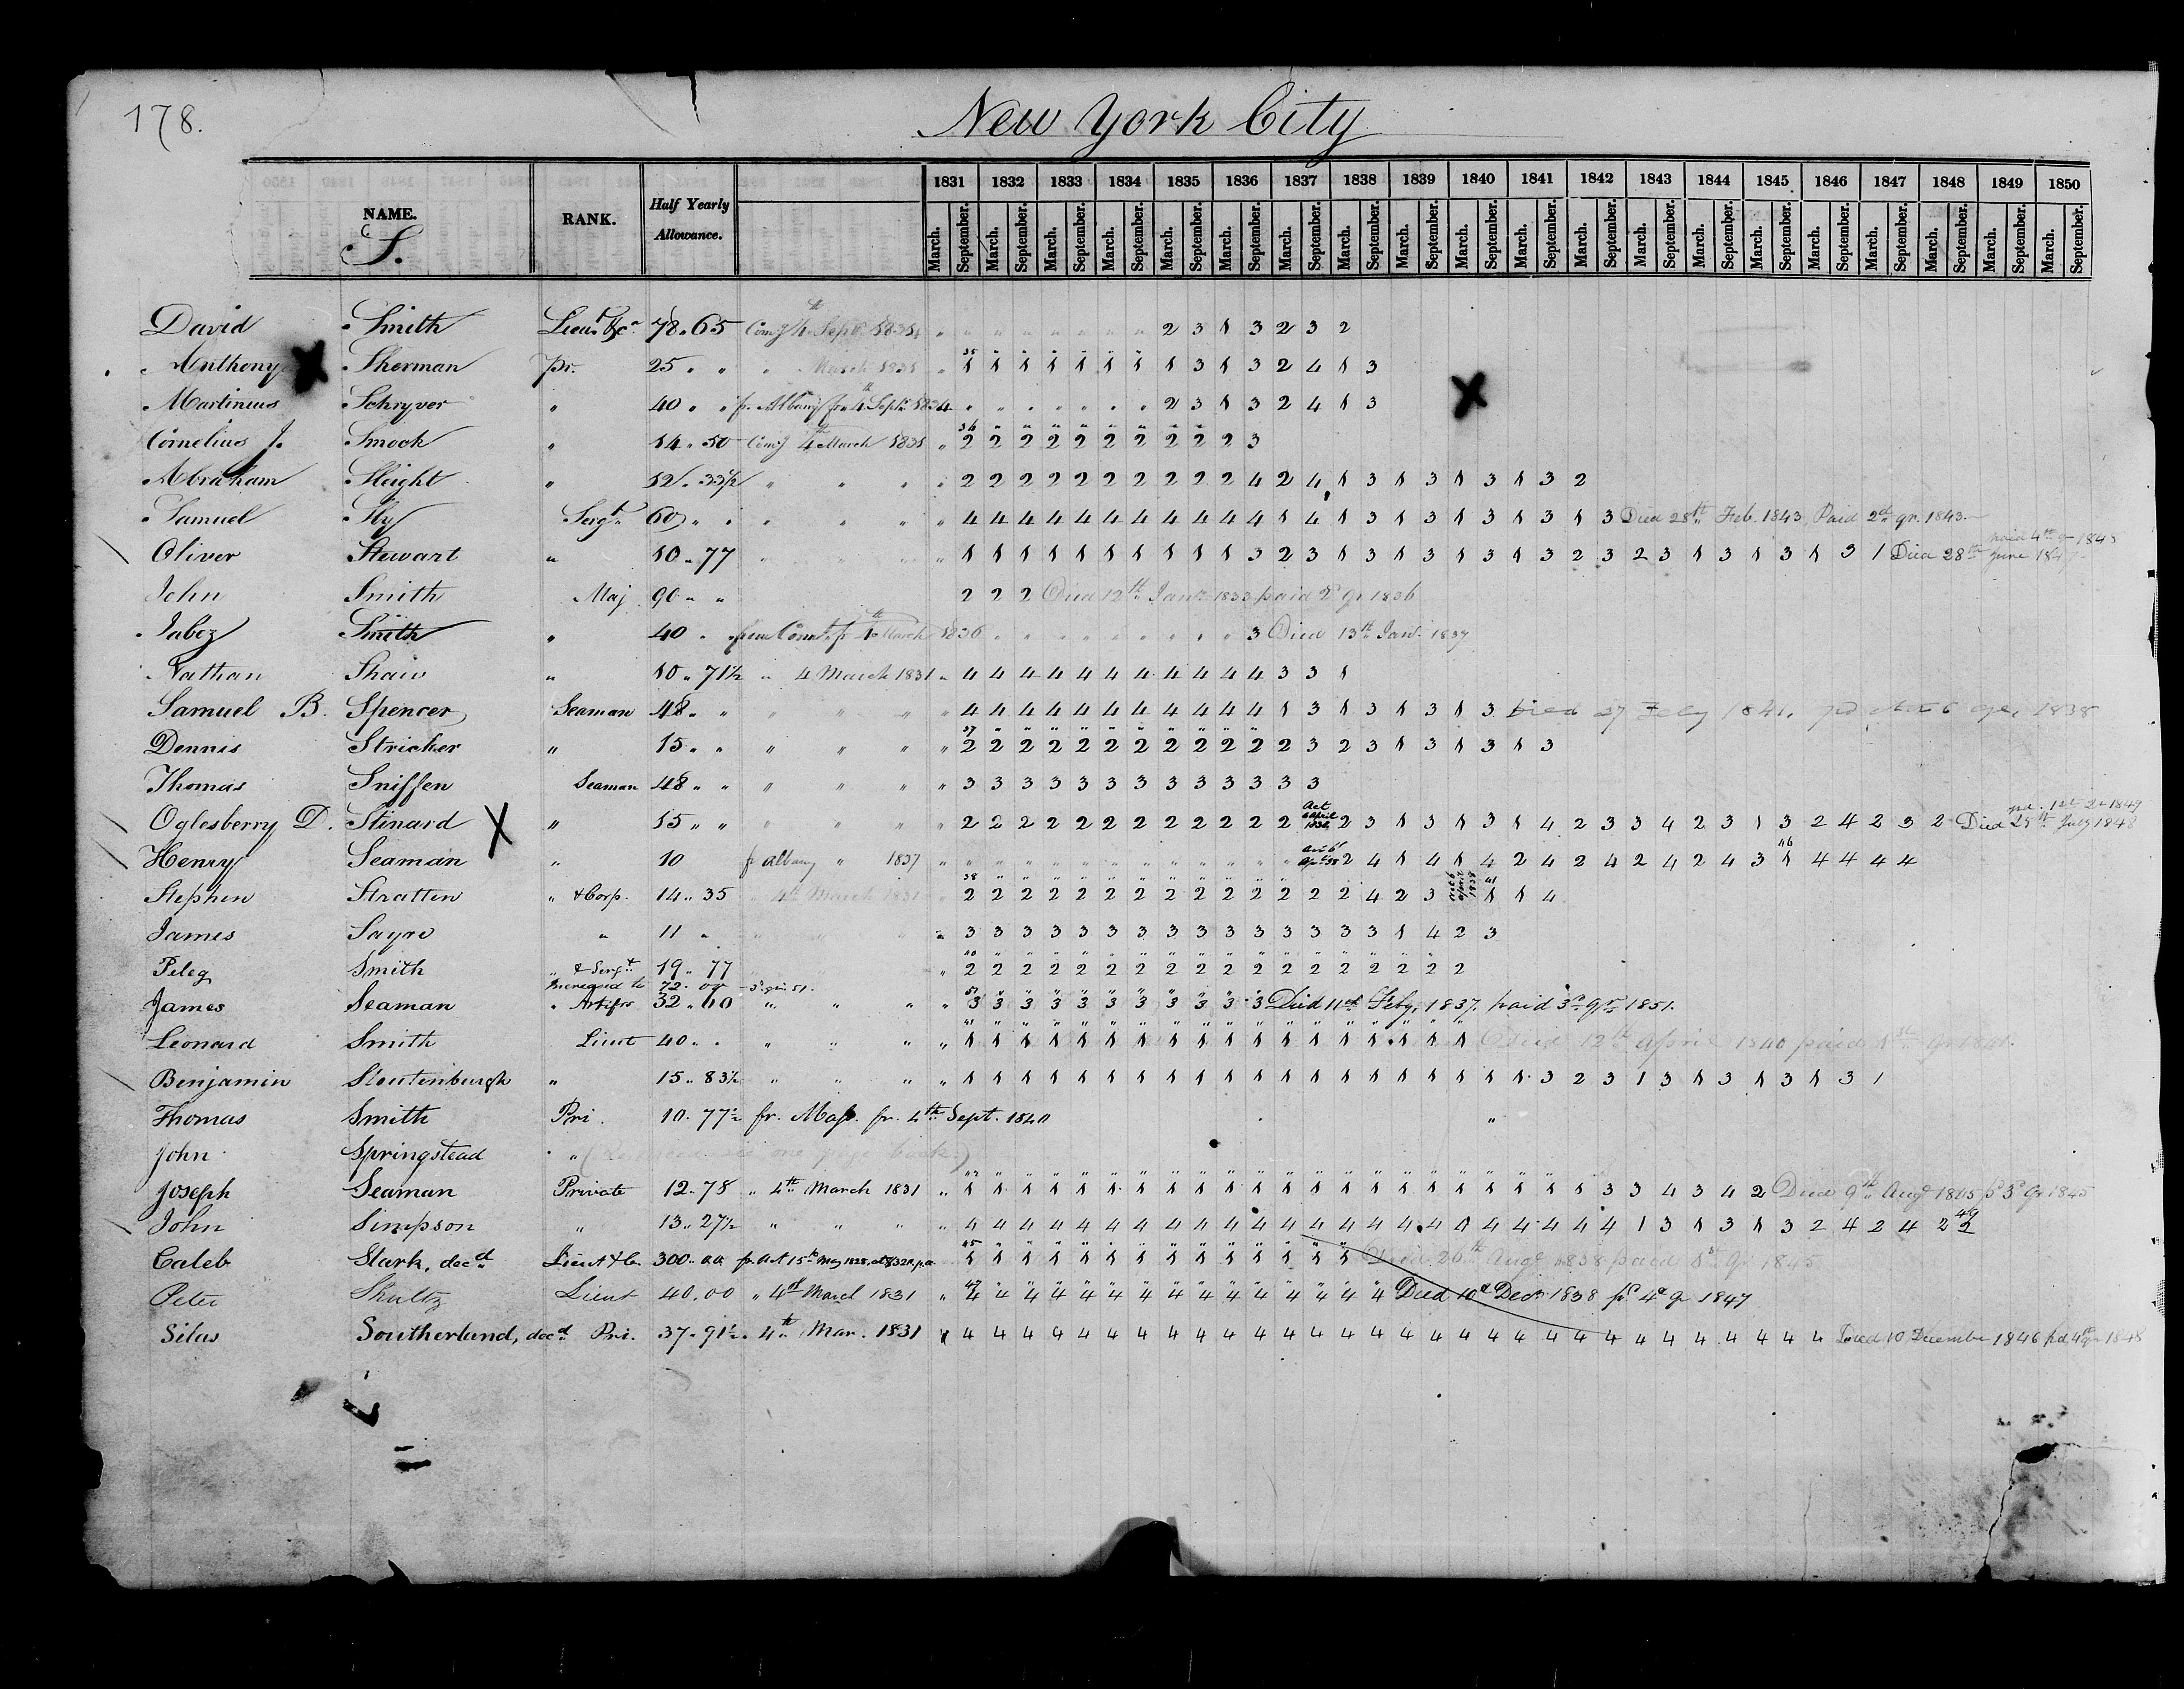 178.
New York City
NAME. RANK. Half Yearly Allowance. 1831 1832 1833 1834 1835 1836 1837 1838 1839 1840 1841 1842 1843 1844 1845 1846 1847 1848 1849 1850
S. March. September. March. September. March. September. March. September. March. September. March. September. March. September. March. September. March. September. March. September. March. September. March. September. March. September. March. September. March. September. March. September. March. September. March. September. March. September. March. September.
David Smith Lieut &c 78.65 Comg 4th Sept 1834 2 3 1 3 2 3 2
Anthony Sherman Pr. 25 " " " March 1831 " 35 1 1 1 1 1 1 1 1 3 1 3 2 4 1 3
Martinus Schryver " 40 " " fr. Albany fr. 4th Sept. 1834 2 3 1 3 2 4 1 3
Cornelius J. Smock " 14.50 Comg 4th March 1831 " 36 2 2 2 2 2 2 2 2 2 2 3
Abraham Sleight " 12.33½ " " " " 2 2 2 2 2 2 2 2 2 2 4 2 4 1 3 1 3 1 3 1 3 2
Samuel Sly Sergt 60 " " " " " " 4 4 4 4 4 4 4 4 4 4 4 1 4 1 3 1 3 1 3 1 3 1 3 Died 28th Feb. 1843, Paid 2d qr. 1843.
Oliver Stewart " 10.77 " " " " 1 1 1 1 1 1 1 1 1 1 3 2 3 1 3 1 3 1 3 1 3 2 3 2 3 1 3 1 3 1 3 1 Died 28th June 184 paid 4th
John Smith Maj 90 " " 2 2 2 Died 12th Jany 1833 paid 2d qr 1836
Jabez Smith " 40 " from Connt. fr 4th March 1836 3 Died 13th Jan. 1837
Nathan Shaw " 10.71½ " 4 March 1831 " 4 4 4 4 4 4 4 4 4 4 4 3 3 1
Samuel B. Spencer Seaman 48 " " " " " " 4 4 4 4 4 4 4 4 4 4 4 1 3 1 3 1 3 1 3 Died 27 Feby 1841,
Dennis Stricker " 15 " " " " " " 37 2 2 2 2 2 2 2 2 2 2 2 2 3 2 3 1 3 1 3 1 3
Thomas Sniffen Seaman 48 " " " " " " 3 3 3 3 3 3 3 3 3 3 3 3 3
Oglesberry D. Stinard X " 15 " " " " " " 2 2 2 2 2 2 2 2 2 2 2 2 Act 6 April 1838 2 3 1 3 1 3 1 4 2 3 3 4 2 3 1 3 2 4 2 3 2 Died 25th July 1848
Henry Seaman " 10 fr Albany " 1837 " Act 6 Apl 38 2 4 1 4 1 4 2 4 2 4 2 4 2 4 3 46 1 4 4 4 4
Stephen Stratten " & Corp. 14.35 " 4th March 1831 38 2 2 2 2 2 2 2 2 2 2 2 2 2 2 4 2 3 Act 6 April 1838 41 1 1 4
James Sayre " 11 " " " " 3 3 3 3 3 3 3 3 3 3 3 3 3 3 3 1 4 2 3
Peleg Smith " & Sergt 19.77 " 40 2 2 2 2 2 2 2 2 2 2 2 2 2 2 2 2 2 2
Increased to 72.00
James Seaman " Artifr 32.60 " " " " 51 3 3 3 3 3 3 3 3 3 3 3 Died 11th Feby. 1837. paid 3d qr. 1851.
Leonard Smith Lieut 40 " " " " " " 41 1 1 1 1 1 1 1 1 1 1 1 1 1 1 1 1 1 1 Died 12th April 1840 paid 1st qr 1841.
Benjamin Stoutenburgh " 15.83½ " " " " 1 1 1 1 1 1 1 1 1 1 1 1 1 1 1 1 1 1 1 1 3 2 3 1 3 1 3 1 3 1 3 1
Thomas Smith Pri. 10.77½ fr. Mass. fr. 4th Sept. 1840 "
John Springstead " ( see one page back.)
Joseph Seaman Private 12.78 " 4th March 1831 " 42 1 1 1 1 1 1 1 1 1 1 1 1 1 1 1 1 1 1 1 1 1 1 3 3 4 3 4 2 Died 9th Augt 1845 pd 3d qr 1845
John Simpson " 13.27½ " " " " 4 4 4 4 4 4 4 4 4 4 4 4 4 4 4 4 4 1 4 4 4 4 4 1 3 1 3 1 3 2 4 2 4 2 49 2
Caleb Stark, decd Lieut &c. 300.00 fr Act 15th May 1828, 45 1 1 1 1 1 1 1 1 1 1 1 1 1 1 Died 26th Augt 1838 paid 1st qr 1845
Peter Shultz Lieut 40.00 " 4th March 1831 " 47 4 " " " " " " " " " " " " " " Died 10d Decr. 1838 pd 4th qr 1847
Silas Southerland, decd Pri. 37.91½ " 4th Mar. 1831 4 4 4 4 4 4 4 4 4 4 4 4 4 4 4 4 4 4 4 4 4 4 4 4 4 4 4 4 4 4 Died 10 December 1846 pd. 4th qr 1848